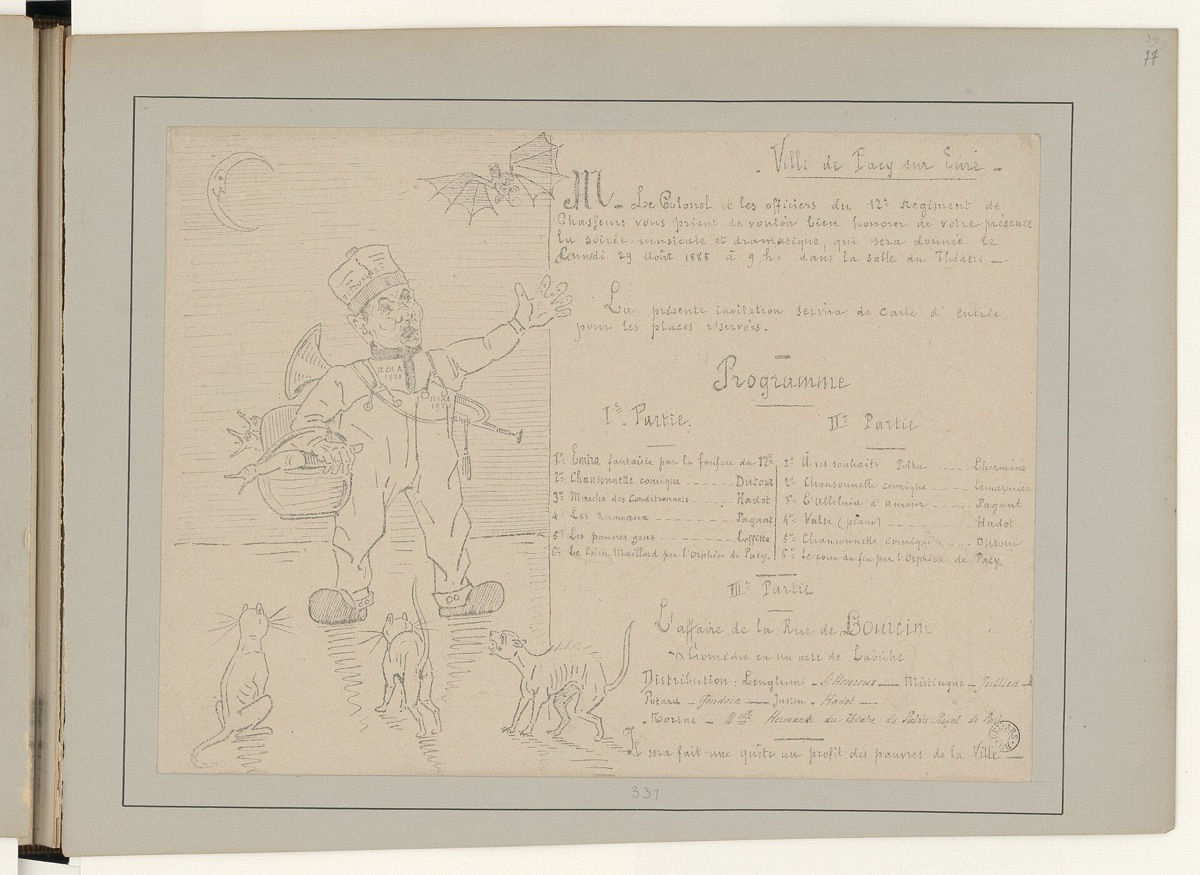 77
Ville de Pacy sur Eure -
M - Le Colonel et les officiers du 12e Régiment de
Chasseurs vous prient de vouloir bien honorer de votre présence
la soirée musicale et dramatique qui sera donnée le
Lundi 29 Août 1885 à 9 h. dans la salle du Théâtre -
La présente invitation servira de carte d'entrée
pour les places réservées.
Programme
Ie Partie.
1o Emira fantaisie par la fanfare du 12e
2o Chansonnette comique - - - - Dutour
3o Marche des Conditionnels - - Hadot
4o Les Rameaux - - - - Pagant
5o Les pauvres gens - - - - Laffitte
6o Le Colin Maillard par l'Orphéon de Pacy.
IIe Partie
1o À vos souhaits Polka - - - - Lhermine
2o Chansonnette comique - - - - Lemarinier
3o L'Alleluia d'amour - - - - Pagant
4o Valse (piano) - - - - Hadot
5o Chansonnette comique - - Dutour
6o Le coin du feu par l'Orphéon de Pacy.
IIIe Partie
L'affaire de la Rue de Lourcine
Comédie en un acte de Labiche
Distribution : Lenglumé - L'Heureux - Mistingue - Jullien -
Potard - Gaudoin - Justin - Hadot -
- Norine - Melle Hermance du Théâtre du Palais-Royal de Paris
Il sera fait une quête au profit des pauvres de la Ville -
12 CH.A
1921
331